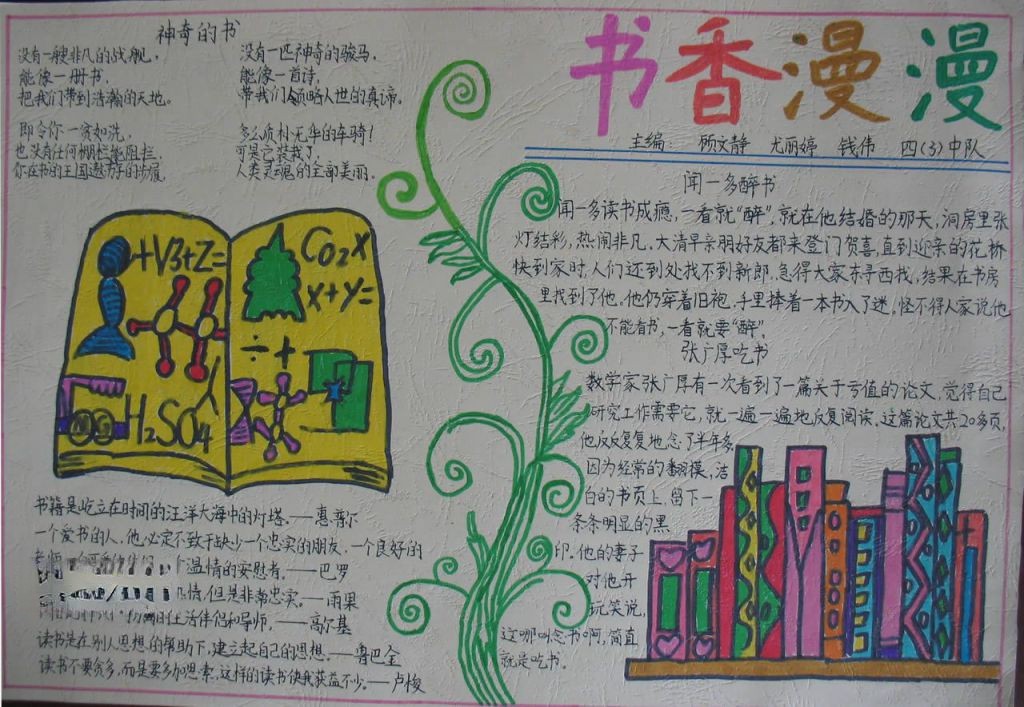 书香漫漫
主编 顾文静 尤丽婷 钱伟 四(3)中队
神奇的书
没有一艘非凡的战舰，
能像一册书，
把我们带到浩瀚的天地。
没有一匹神奇的骏马，
能像一首诗，
带我们领略人世的真谛。
即令你一贫如洗，
也没有任何栅栏能阻拦
你在书的王国遨游的步履
多么质朴无华的车骑！
可是它装载了
人类灵魂的全部美丽。
+√3+Z=
CO₂X
X+Y=
÷+
H₂SO₄
书籍是屹立在时间的汪洋大海中的灯塔。——惠普尔
一个爱书的人，他必定不致于缺少一个忠实的朋友，一个良好的
老师
温情的安慰者。——巴罗
情，但是非常忠实。——雨果
生活伴侣和导师。——高尔基
读书是在别人思想的帮助下，建立起自己的思想。——鲁巴金
读书不要贪多，而是要多加思索，这样的读书使我获益不少。——卢梭
闻一多醉书
闻一多读书成瘾，一看就“醉”，就在他结婚的那天，洞房里张
灯结彩，热闹非凡。大清早亲朋好友都来登门贺喜，直到迎亲的花轿
快到家时，人们还到处找不到新郎。急得大家东寻西找，结果在书房
里找到了他。他仍穿着旧袍，手里捧着一本书入了迷。怪不得人家说他
不能看书，一看就要“醉”。
张广厚吃书
数学家张广厚有一次看到了一篇关于亏值的论文，觉得自己
研究工作需要它，就一遍一遍地反复阅读。这篇论文共20多页，
他反反复复地念了半年多。
因为经常的翻摸，洁
白的书页上，留下一
条条明显的黑
印。他的妻子
对他开
玩笑说，
这哪叫念书啊，简直
就是吃书。